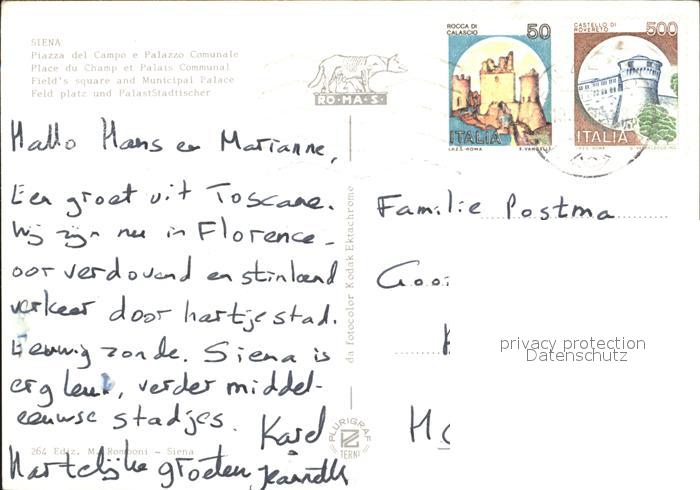 SIENA
Piazza del Campo e Palazzo Comunale
Place du Champ et Palais Communal
Field's square and Municipal Palace
Feld platz und PalastStadtischer
RO·MA·S·
ROCCA DI
CALASCIO
50
ITALIA
I.P.Z.S. ROMA
E. VANGELLI
CASTELLO DI
ROVERETO
500
ITALIA
I.P.Z.S. ROMA
Hallo Hans en Marianne,
Een groet uit Toscane.
Wij zijn nu in Florence -
oorverdovend en stinkend
verkeer door hartje stad.
Eeuwig zonde. Siena is
erg leuk, verder middel-
eeuwse stadjes.
Karel
Hartelijke groeten, Jeannette
264 Ediz. M. Romboni - Siena
da fotocolor Kodak Ektachrome
PLURIGRAF
TERNI
Familie Postma
Gooi
privacy protection
Datenschutz